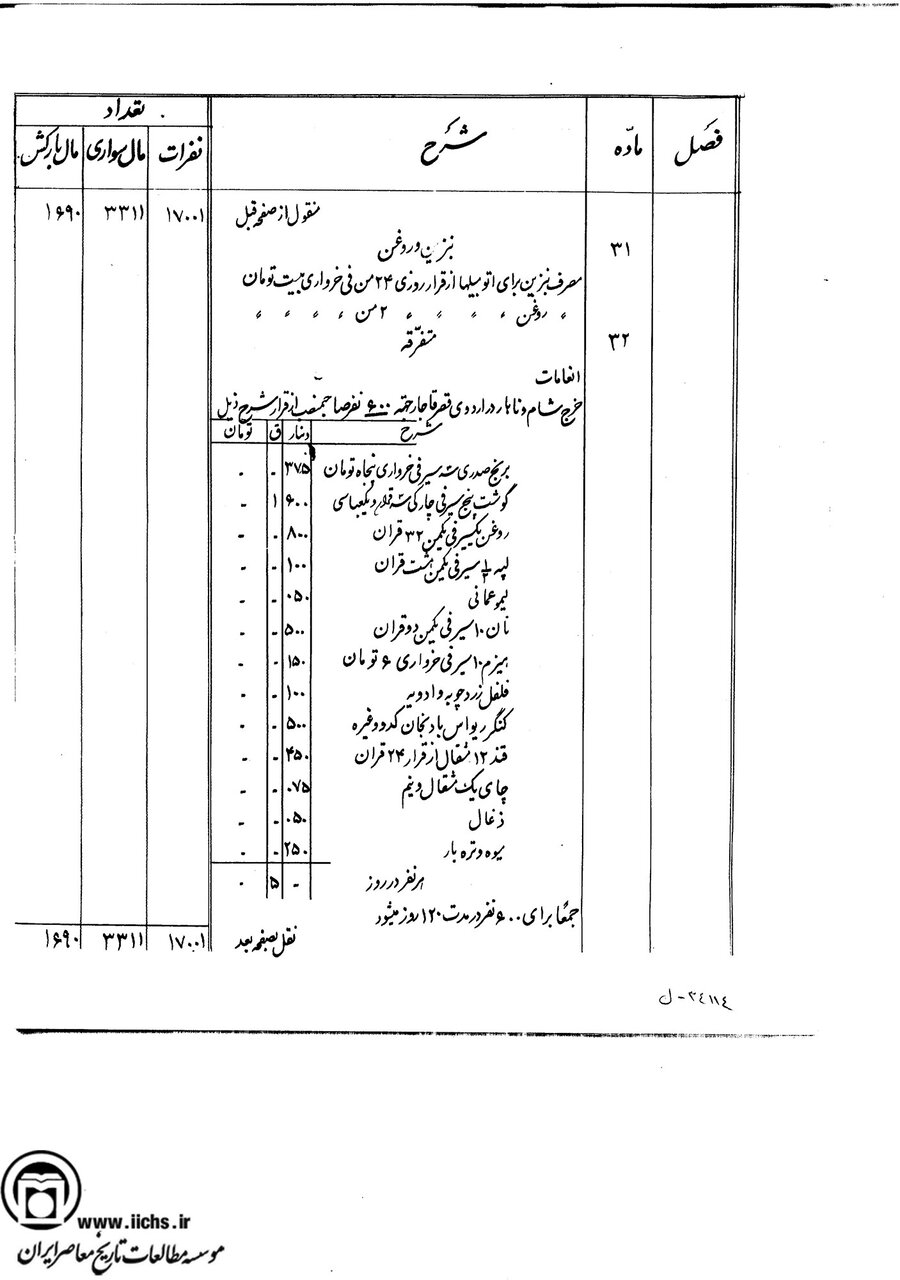 فصل ماده شرح تعداد
نفرات مال سواری مال بارکش
منقول از صفحه قبل ۱۷۰۰۱ ۳۳۱۱ ۱۶۹۰
۳۱ بنزین و روغن
مصرف بنزین برای اتومبیلها از قرار روزی ۲۴ من فی خرواری بیست تومان
〃 روغن 〃 〃 〃 〃 ۲ من 〃 〃 〃 〃
۳۲ متفرقه
انعامات
خرج شام و ناهار در اردوی قصر قاجار جهة ۶۰۰ نفر صاحبمنصب از قرار شرح ذیل
شرح دینار ق تومان
برنج صدری سه سیر فی خرواری پنجاه تومان ۳۷۵ - -
گوشت پنج سیر فی چارکی سه قران و یکعباسی ۶۰۰ ۱ -
روغن یکسیر فی یکمن ۳۲ قران ۸۰۰ - -
لپه ½ سیر فی یکمن هشت قران ۱۰۰ - -
لیمو عمانی ۰۵۰ - -
نان ۱۰ سیر فی یکمن دو قران ۵۰۰ - -
هیزم ۱۰ سیر فی خرواری ۶ تومان ۱۵۰ - -
فلفل زردچوبه و ادویه ۱۰۰ - -
کنگر ریواس بادنجان کدو و غیره ۵۰۰ - -
قند ۱۲ مثقال از قرار ۲۴ قران ۴۵۰ - -
چای یک مثقال و نیم ۰۷۵ - -
ذغال ۰۵۰ - -
میوه و تره بار ۲۵۰ - -
هر نفر در روز - ۵ -
جمعاً برای ۶۰۰ نفر در مدت ۱۲۰ روز میشود
نقل بصفحه بعد ۱۷۰۰۱ ۳۳۱۱ ۱۶۹۰
۳٤۱۱٤-ل
www.iichs.ir
موسسه مطالعات تاریخ معاصر ایران